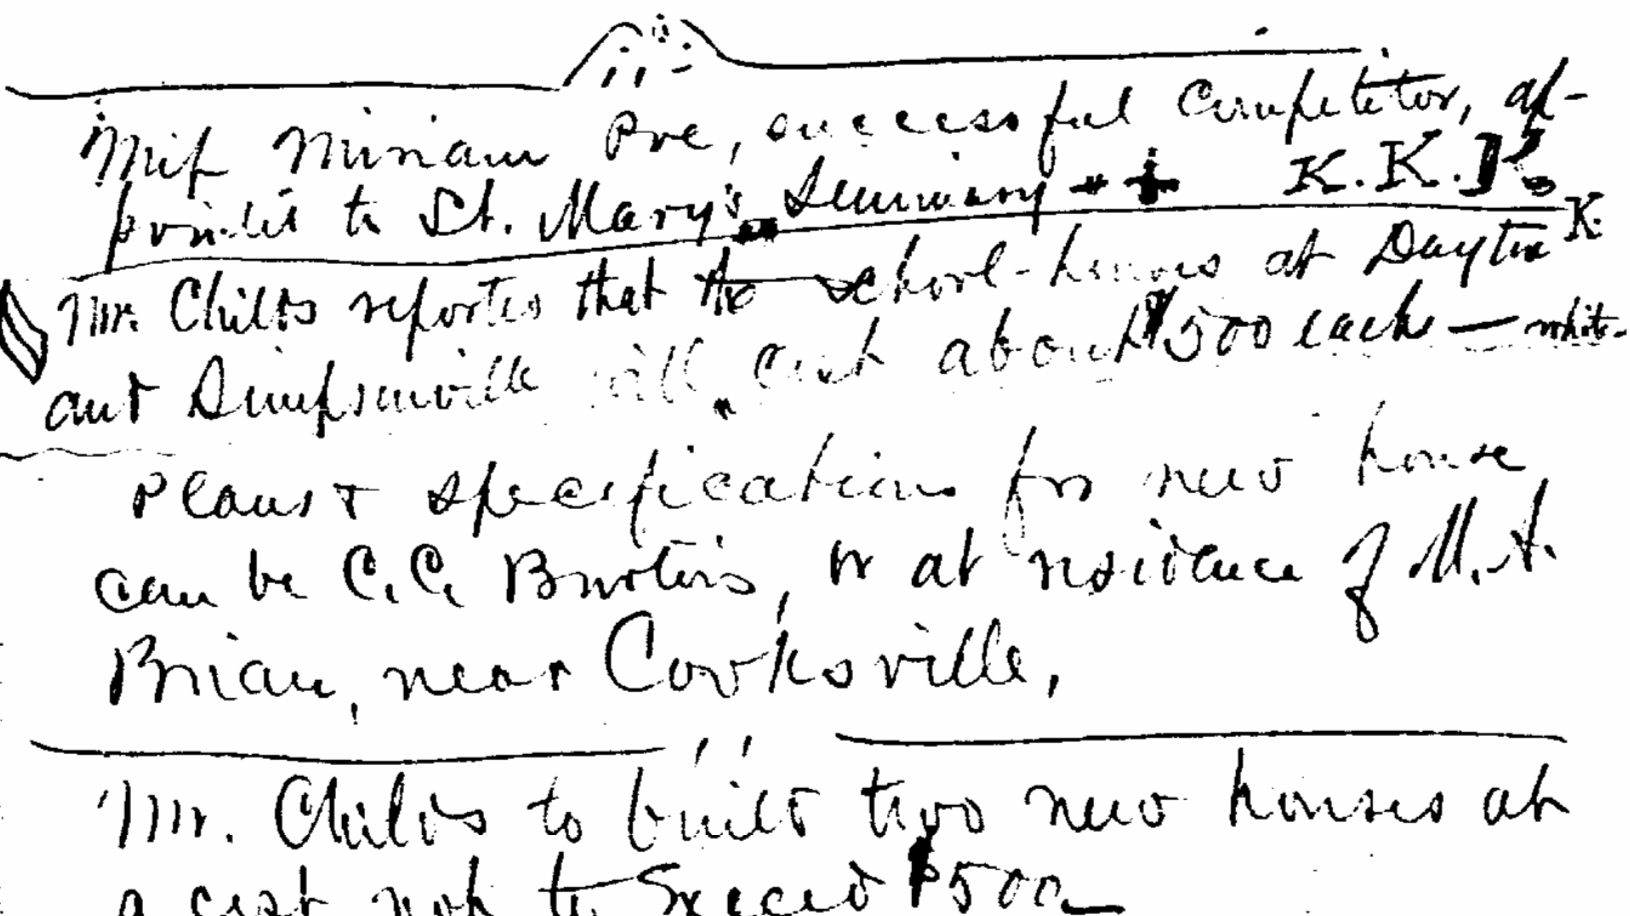 Miss Miriam Poe, successful competitor, ap-
pointed to St. Mary's Seminary
K.K.
K.
Mr. Childs reports that the school-houses at Dayton
and Simpsonville will cost about $500 each — white
Plans & specifications for new house
can be C.C. or at residence of M. A.
Brian, near Cooksville,
Mr. Childs to build two new houses at
a cost not to exceed $500